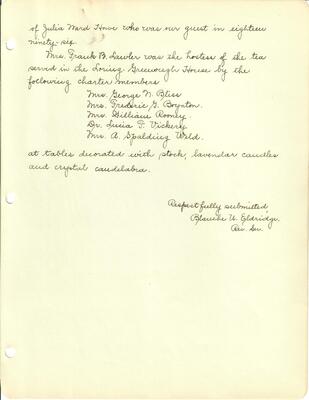 of Julia Ward Howe who was our guest in eighteen
ninety-six.
Mrs. Frank B. Lawler was the hostess of the tea
served in the Loring Greenough House by the
following charter members
Mrs. George N. Bliss
Mrs. Frederic G. Boynton.
Mrs. William Rooney
Dr. Luisa F. Vickery
Mrs. A. Spalding Weld.
at tables decorated with stock, lavendar candles
and crystal candelabra.
Respectfully submitted
Blanche U. Eldridge.
Rec. Sec.